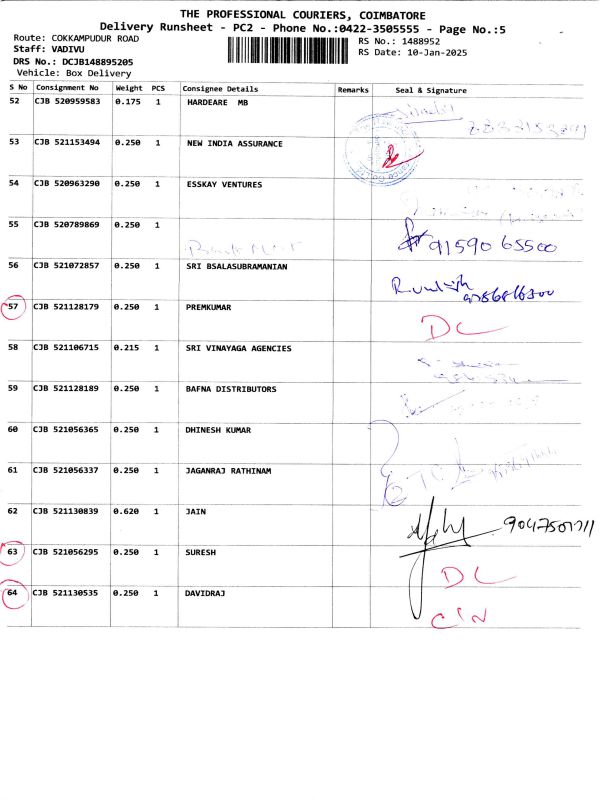 THE PROFESSIONAL COURIERS, COIMBATORE
Delivery Runsheet - PC2 - Phone No.:0422-3505555 - Page No.:5
Route: COKKAMPUDUR ROAD
Staff: VADIVU
DRS No.: DCJB148895205
Vehicle: Box Delivery
RS No.: 1488952
RS Date: 10-Jan-2025
S No Consignment No Weight PCS Consignee Details Remarks Seal & Signature
52 CJB 520959583 0.175 1 HARDEARE MB
53 CJB 521153494 0.250 1 NEW INDIA ASSURANCE
54 CJB 520963290 0.250 1 ESSKAY VENTURES
55 CJB 520789869 0.250 1 91590 65500
56 CJB 521072857 0.250 1 SRI BSALASUBRAMANIAN
57 CJB 521128179 0.250 1 PREMKUMAR DC
58 CJB 521106715 0.215 1 SRI VINAYAGA AGENCIES
59 CJB 521128189 0.250 1 BAFNA DISTRIBUTORS
60 CJB 521056365 0.250 1 DHINESH KUMAR
61 CJB 521056337 0.250 1 JAGANRAJ RATHINAM
62 CJB 521130839 0.620 1 JAIN
63 CJB 521056295 0.250 1 SURESH DC
64 CJB 521130535 0.250 1 DAVIDRAJ CIN